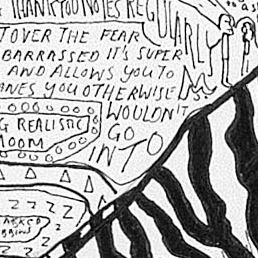 THANK YOU NOTES REGULARLY
T OVER THE FEAR
BARRASSED IT'S SUPER
AND ALLOWS YOU TO
ANES YOU OTHERWISE
WOULDN'T
GO
INTO
G REALISTIC
MOOM
Z Z Z Z